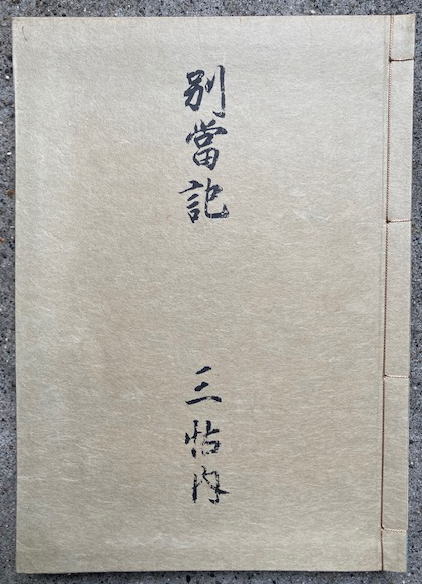 別當記 三帖内